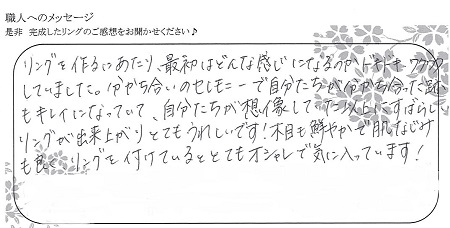 職人へのメッセージ
是非 完成したリングのご感想をお聞かせください♪
リングを作るにあたり、最初はどんな感じになるのかドキドキワクワク
していました。分かち合いのセレモニーで自分たちが分かち合った跡
もキレイになっていて、自分たちが想像していた以上にすばらしい
リングが出来上がりとてもうれしいです!木目も鮮やかで肌なじみ
も良く リングを付けているととてもオシャレで気に入っています!